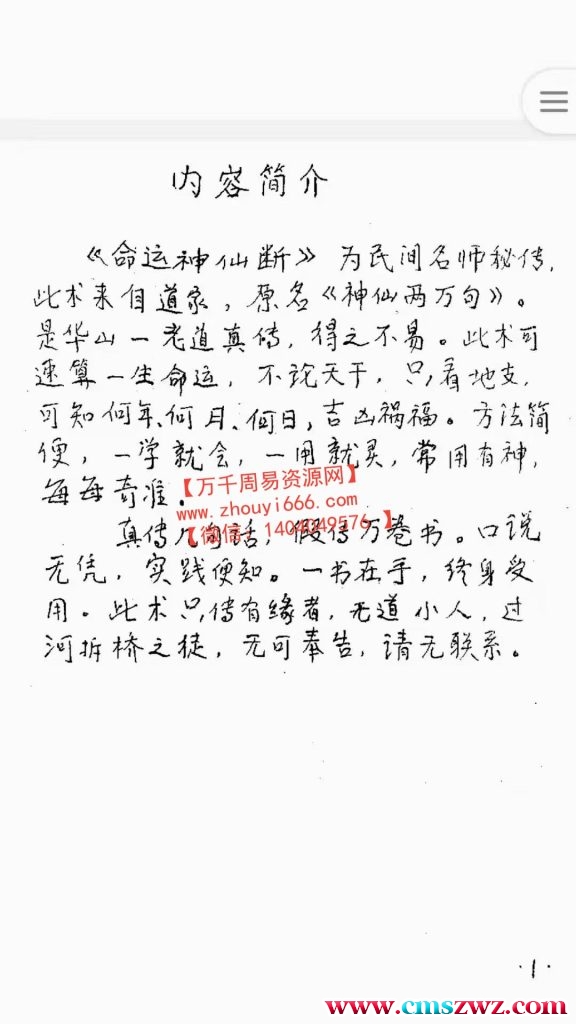 内容简介
《命运神仙断》为民间名师秘传,
此术来自道家，原名《神仙两万句》。
是华山一老道真传，得之不易。此术可
速算一生命运，不论天干，只看地支，
可知何年、何月、何日，吉凶祸福。方法简
便，一学就会，一用就灵，常用有神，
每每奇准。
【万千周易资源网】
www.zhouyi666.com
【微信：1404049576】
真传几句话，假传万卷书。口说
无凭，实践便知。一书在手，终身受
用。此术只传有缘者，无道小人，过
河拆桥之徒，无可奉告，请无联系。
·1·
www.cmszwz.com